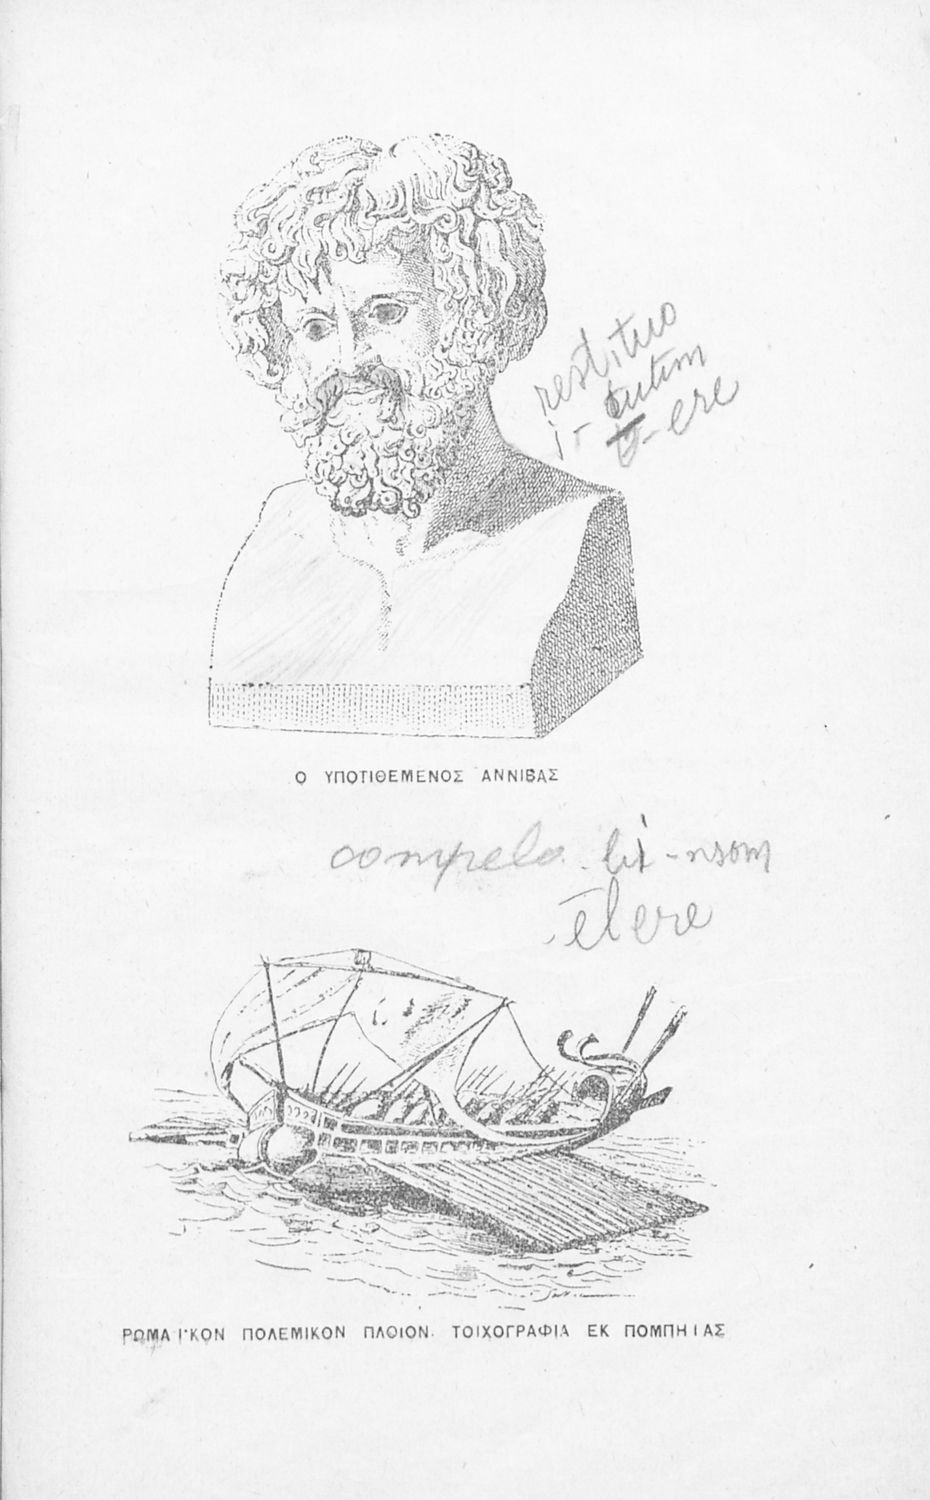 restituo
i- tutum
ere
Ο ΥΠΟΤΙΘΕΜΕΝΟΣ ΑΝΝΙΒΑΣ
compelo
ēlere
ΡΩΜΑΪΚΟΝ ΠΟΛΕΜΙΚΟΝ ΠΛΟΙΟΝ. ΤΟΙΧΟΓΡΑΦΙΑ ΕΚ ΠΟΜΠΗΙΑΣ